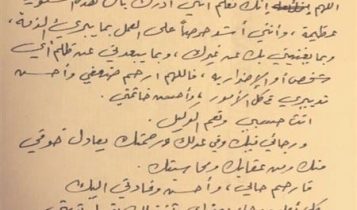 اللهم إنك تعلم أنني أدرك بأن هذه
عظيمة، وأنني أشد حرصاً على العمل بما يبرئ الذمة،
وبما يغنيني بك عن غيرك، وبما يبعدني عن ظلم أي
شخص أو الإضرار به، فاللهم ارحم ضعفي وأحسن
تدبيري في كل الأمور، وأحسن خاتمتي.
أنت حسبي ونعم الوكيل.
ورجائي فيك وفي عدلك ورحمتك يعادل خوفي
منك ومن عقابك ومحاسبتك.
فارحم حالي، وأحسن وفادتي إليك